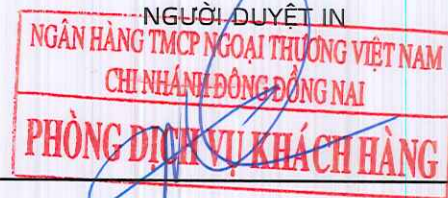 NGƯỜI DUYỆT IN
NGÂN HÀNG TMCP NGOẠI THƯƠNG VIỆT NAM
CHI NHÁNH ĐÔNG ĐỒNG NAI
PHÒNG DỊCH VỤ KHÁCH HÀNG